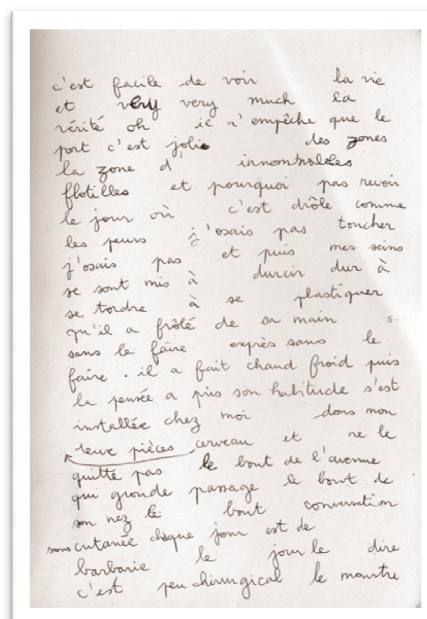 c'est facile de voir la vie
et very very much la
vérité oh il n'empêche que le
port c'est jolie des zones
la zone d' innombrables
flotilles et pourquoi pas revoir
le jour où c'est drôle comme
les peurs j'osais pas toucher
j'osais pas et puis mes seins
se sont mis à durcir dur à
se tordre à se plastiquer
qu'il a frôlé de sa main
sans le faire exprès sans le
faire . il a fait chaud froid puis
la pensée a pris son habitude s'est
installée chez moi dans mon
deux pièces cerveau et ne le
quitte pas le bout de l'avenue
qui gronde passage le bout de
son nez le bout conversation
sous cutanée chaque jour est de
barbarie le jour le dire
c'est peu chirurgical le monstre